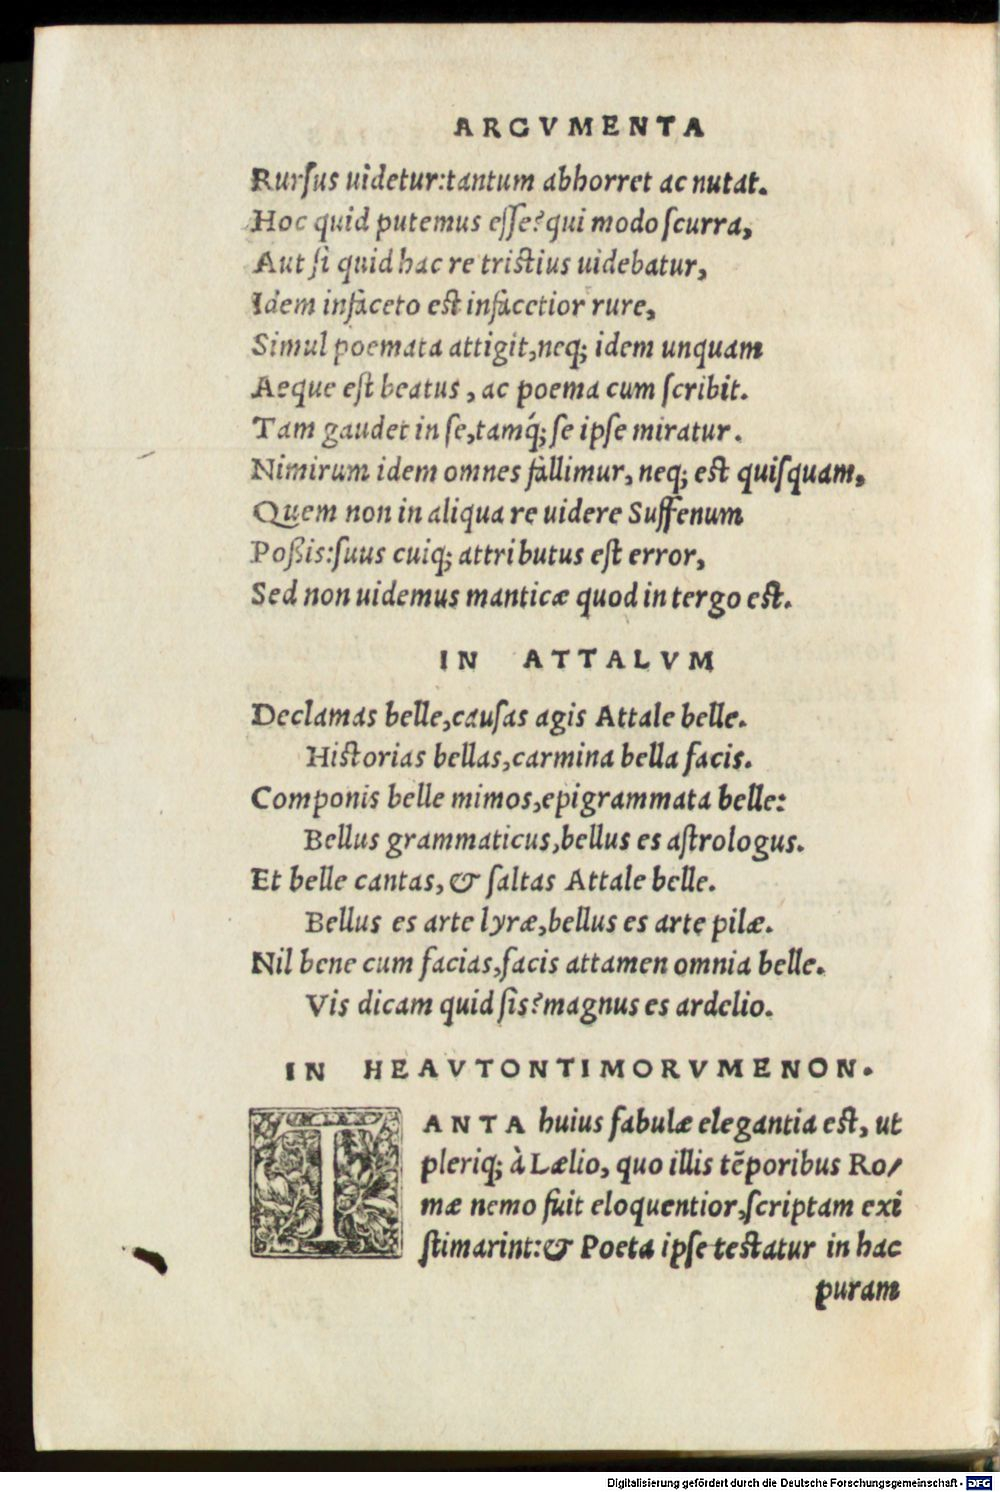 ARGVMENTA
Rurſus uidetur:tantum abhorret ac nutat.
Hoc quid putemus eſſe? qui modo ſcurra,
Aut ſi quid hac re triſtius uidebatur,
Idem inſaceto eſt inſacetior rure,
Simul poemata attigit,neq; idem unquam
Aeque eſt beatus, ac poema cum ſcribit.
Tam gaudet in ſe,tamq́; ſe ipſe miratur.
Nimirum idem omnes fallimur, neq; eſt quiſquam,
Quem non in aliqua re uidere Suffenum
Poßis:ſuus cuiq; attributus eſt error,
Sed non uidemus manticæ quod in tergo eſt.
IN ATTALVM
Declamas belle,cauſas agis Attale belle.
Hiſtorias bellas,carmina bella facis.
Componis belle mimos,epigrammata belle:
Bellus grammaticus,bellus es aſtrologus.
Et belle cantas, & ſaltas Attale belle.
Bellus es arte lyræ,bellus es arte pilæ.
Nil bene cum facias,facis attamen omnia belle.
Vis dicam quid ſis? magnus es ardelio.
IN HEAVTONTIMORVMENON.
TANTA huius fabulæ elegantia eſt, ut
pleriq; à Lælio, quo illis tēporibus Ro/
mæ nemo fuit eloquentior,ſcriptam exi
ſtimarint:& Poeta ipſe teſtatur in hac
puram
Digitalisierung gefördert durch die Deutsche Forschungsgemeinschaft - DFG